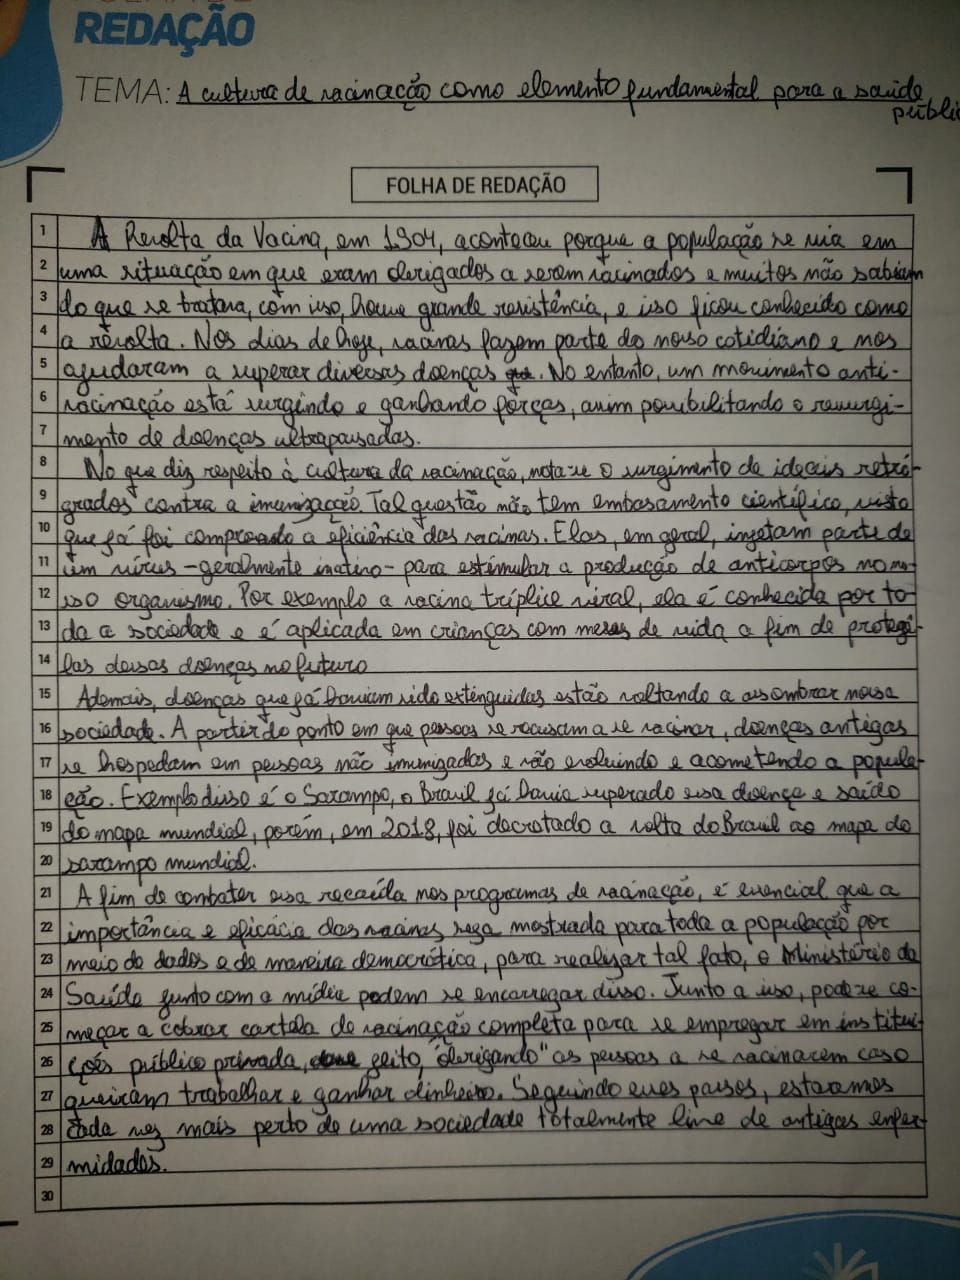 REDAÇÃO
TEMA: A cultura de vacinação como elemento fundamental para a saúde
públic
FOLHA DE REDAÇÃO
1 A Revolta da Vacina, em 1904, aconteceu porque a população se via em
2 uma situação em que eram obrigados a serem vacinados e muitos não sabiam
3 do que se tratava, com isso, houve grande resistência, e isso ficou conhecido como
4 a revolta. Nos dias de hoje, vacinas fazem parte do nosso cotidiano e nos
5 ajudaram a superar diversas doenças. No entanto, um movimento anti-
6 vacinação está surgindo e ganhando forças, assim possibilitando o ressurgi-
7 mento de doenças ultrapassadas.
8 No que diz respeito à cultura da vacinação, nota-se o surgimento de ideais retró-
9 grados contra a imunização. Tal questão não tem embasamento científico, visto
10 que já foi comprovado a eficiência das vacinas. Elas, em geral, injetam parte de
11 um vírus -geralmente inativo- para estimular a produção de anticorpos no nos
12 so organismo. Por exemplo a vacina tríplice viral, ela é conhecida por to-
13 da a sociedade e é aplicada em crianças com meses de vida a fim de protegê-
14 las dessas doenças no futuro
15 Ademais, doenças que já haviam sido extinguidas estão voltando a assombrar nossa
16 sociedade. A partir do ponto em que pessoas se recusam a se vacinar, doenças antigas
17 se hospedam em pessoas não imunizadas e vão evoluindo e acometendo a popula-
18 ção. Exemplo disso é o Sarampo, o Brasil já havia superado essa doença e saído
19 do mapa mundial, porém, em 2018, foi decretado a volta do Brasil ao mapa do
20 sarampo mundial.
21 A fim de combater essa recaída nos programas de vacinação, é essencial que a
22 importância e eficácia das vacinas seja mostrada para toda a população por
23 meio de dados e de maneira democrática, para realizar tal fato, o Ministério da
24 Saúde junto com a mídia podem se encarregar disso. Junto a isso, pode-se co-
25 meçar a cobrar cartela de vacinação completa para se empregar em institui-
26 ções público privada, jeito, "obrigando" as pessoas a se vacinarem caso
27 queiram trabalhar e ganhar dinheiro. Seguindo esses passos, estaremos
28 cada vez mais perto de uma sociedade totalmente livre de antigas enfer-
29 midades.
30